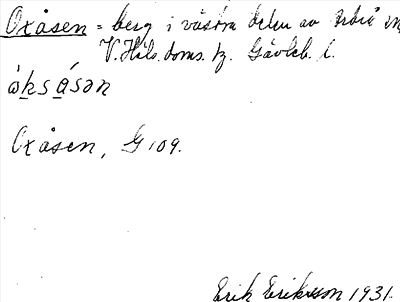 Oxåsen = berg i västra delen av Arbrå sn
V. Häls. doms. hg. Gävleb. l.
òksá̀sən
Oxåsen, G 109.
Erik Eriksson 1931.